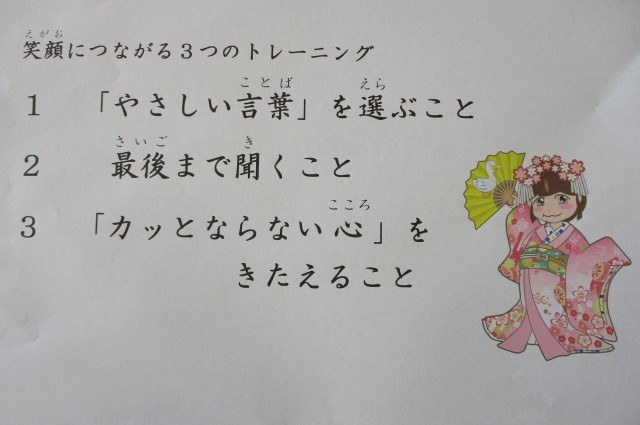 えがお
笑顔につながる３つのトレーニング
ことば えら
１ 「やさしい言葉」を選ぶこと
さいご き
２ 最後まで聞くこと
こころ
３ 「カッとならない心」を
きたえること